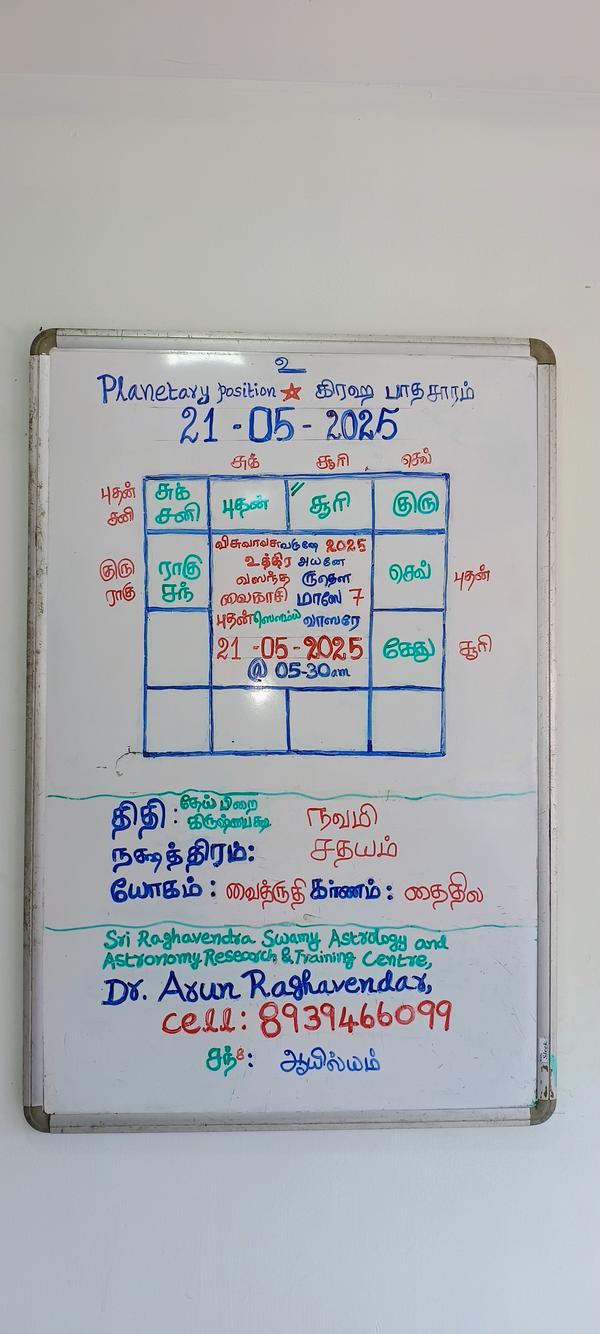 உ
Planetary position ★ கிரஹ பாதசாரம்
21-05-2025
சுக் சூரி செவ்
புதன் சனி
சுக் சனி
புதன்
சூரி
குரு
குரு ராகு
ராகு சந்
விசுவாவசுவருஷே 2025
உத்திர அயனே
வஸந்த ருதௌ
வைகாசி மாஸே 7
புதன் ஸௌம்ய வாஸரே
21-05-2025
@ 05-30am
செவ்
புதன்
கேது
சூரி
திதி : தேய்பிறை கிருஷ்ணபக்ஷ நவமி
நக்ஷத்திரம்: சதயம்
யோகம் : வைத்ருதி கர்ணம் : தைதில
Sri Raghavendra Swamy Astrology and
Astronomy Research & Training Centre,
Dr. Arun Raghavendar,
cell: 8939466099
சந் 8 : ஆயில்யம்